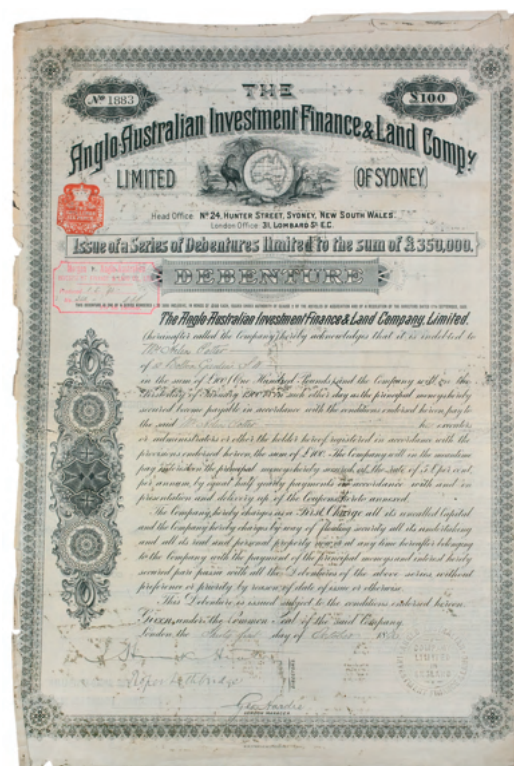 THE
No 1883
£100
Anglo-Australian Investment Finance & Land Compy
LIMITED (OF SYDNEY)
Head Office No 24, HUNTER STREET, SYDNEY, NEW SOUTH WALES.
London Office 31, LOMBARD St E.C.
Issue of a Series of Debentures limited to the sum of £350,000.
DEBENTURE
The Anglo-Australian Investment Finance & Land Company, Limited.
(hereinafter called the Company) hereby acknowledges that it is indebted to
of
in the sum of £100 (One Hundred Pounds) and the Company will on the
day of February 1900 or on such other day as the principal moneys hereby
secured become payable in accordance with the conditions endorsed hereon pay to
the said executors
or administrators or other the holder hereof registered in accordance with the
provisions endorsed hereon, the sum of £100. The Company will in the meantime
pay interest on the principal moneys hereby secured at the rate of 5 per cent.
per annum, by equal half yearly payments in accordance with and on
presentation and delivery up of the Coupons hereto annexed.
The Company hereby charges as a First Charge all its uncalled Capital
and the Company hereby charges by way of floating security all its undertaking
and all its real and personal property now or at any time hereafter belonging
to the Company with the payment of the principal moneys and interest hereby
secured pari passu with all the Debentures of the above series without
preference or priority by reason of date of issue or otherwise.
This Debenture is issued subject to the conditions endorsed hereon.
Given under the Common Seal of the said Company
London, the day of October